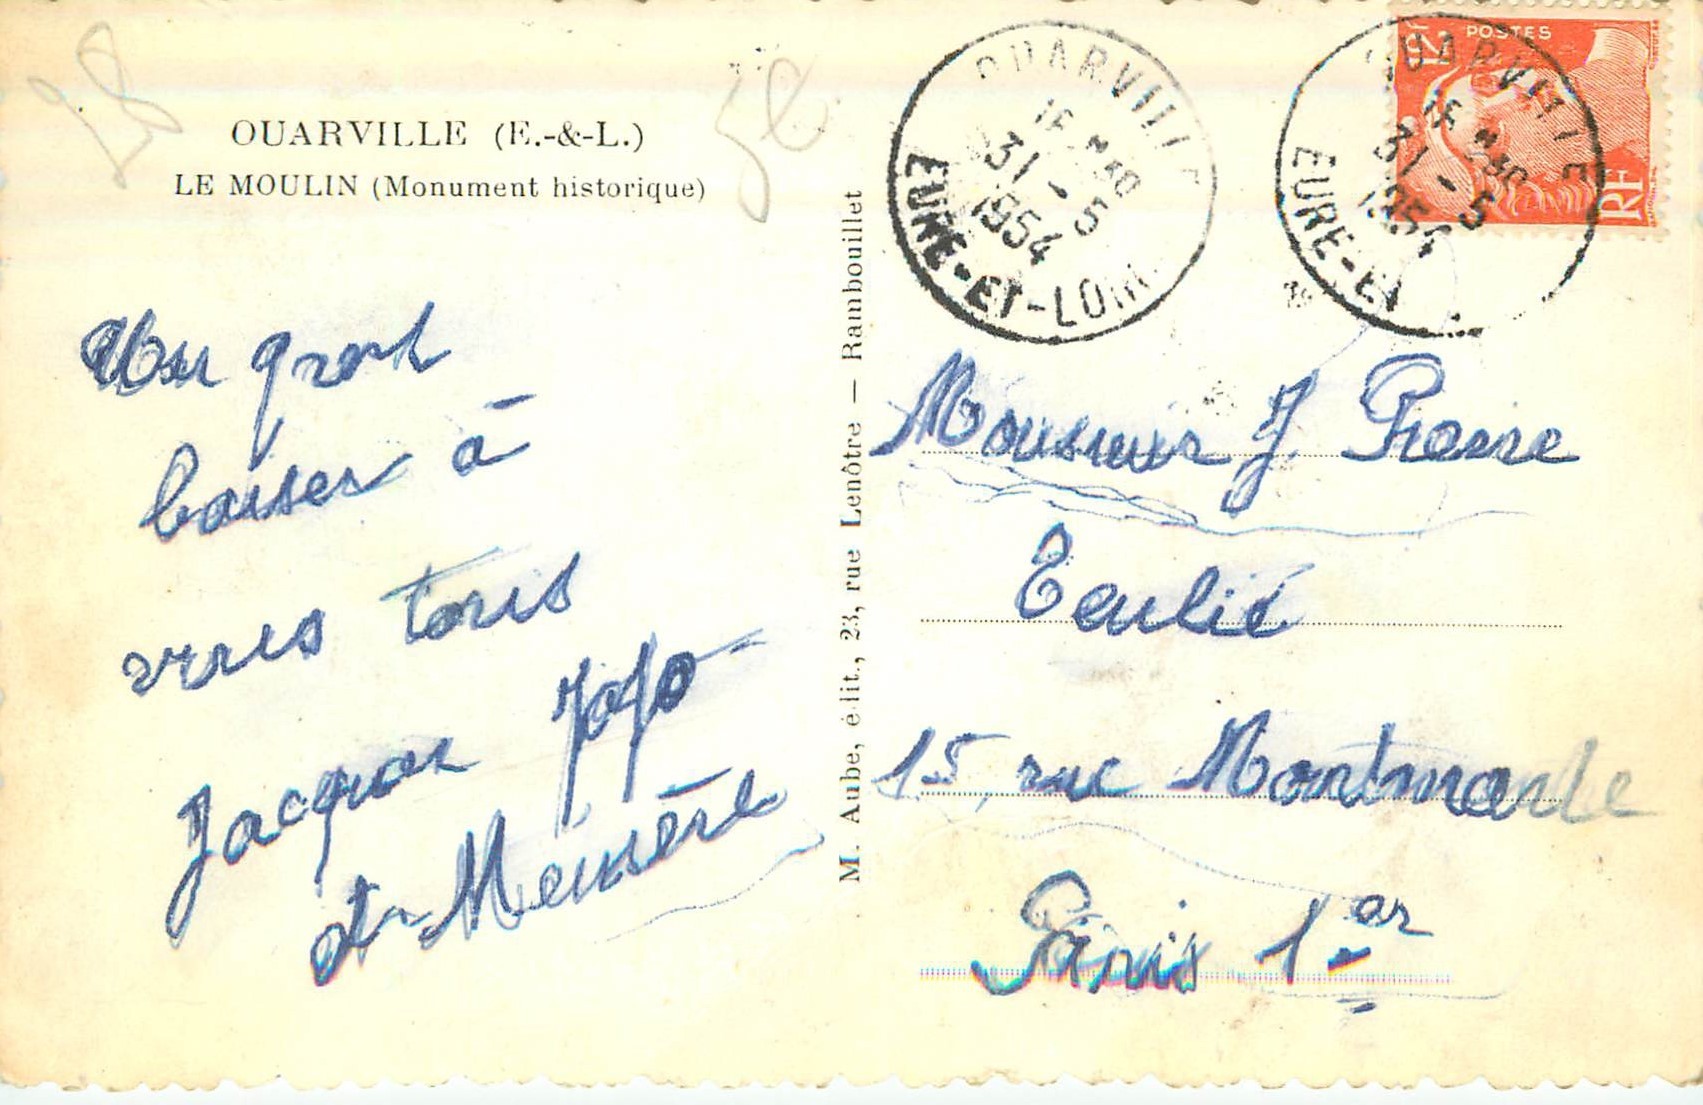 28
5e
OUARVILLE (E.-&-L.)
LE MOULIN (Monument historique)
Un gros
baiser à
vous tous
Jacques Jojo
et Mémère
M. Aube, édit., 23, rue Lenôtre — Rambouillet
OUARVILLE
16 H30
31-5
1954
EURE-ET-LOIR
OUARVILLE
16 H30
31-5
1954
EURE-ET
POSTES
12F
RF
Monsieur J. Pierre
Teulié
15, rue Montmartre
Paris 1er